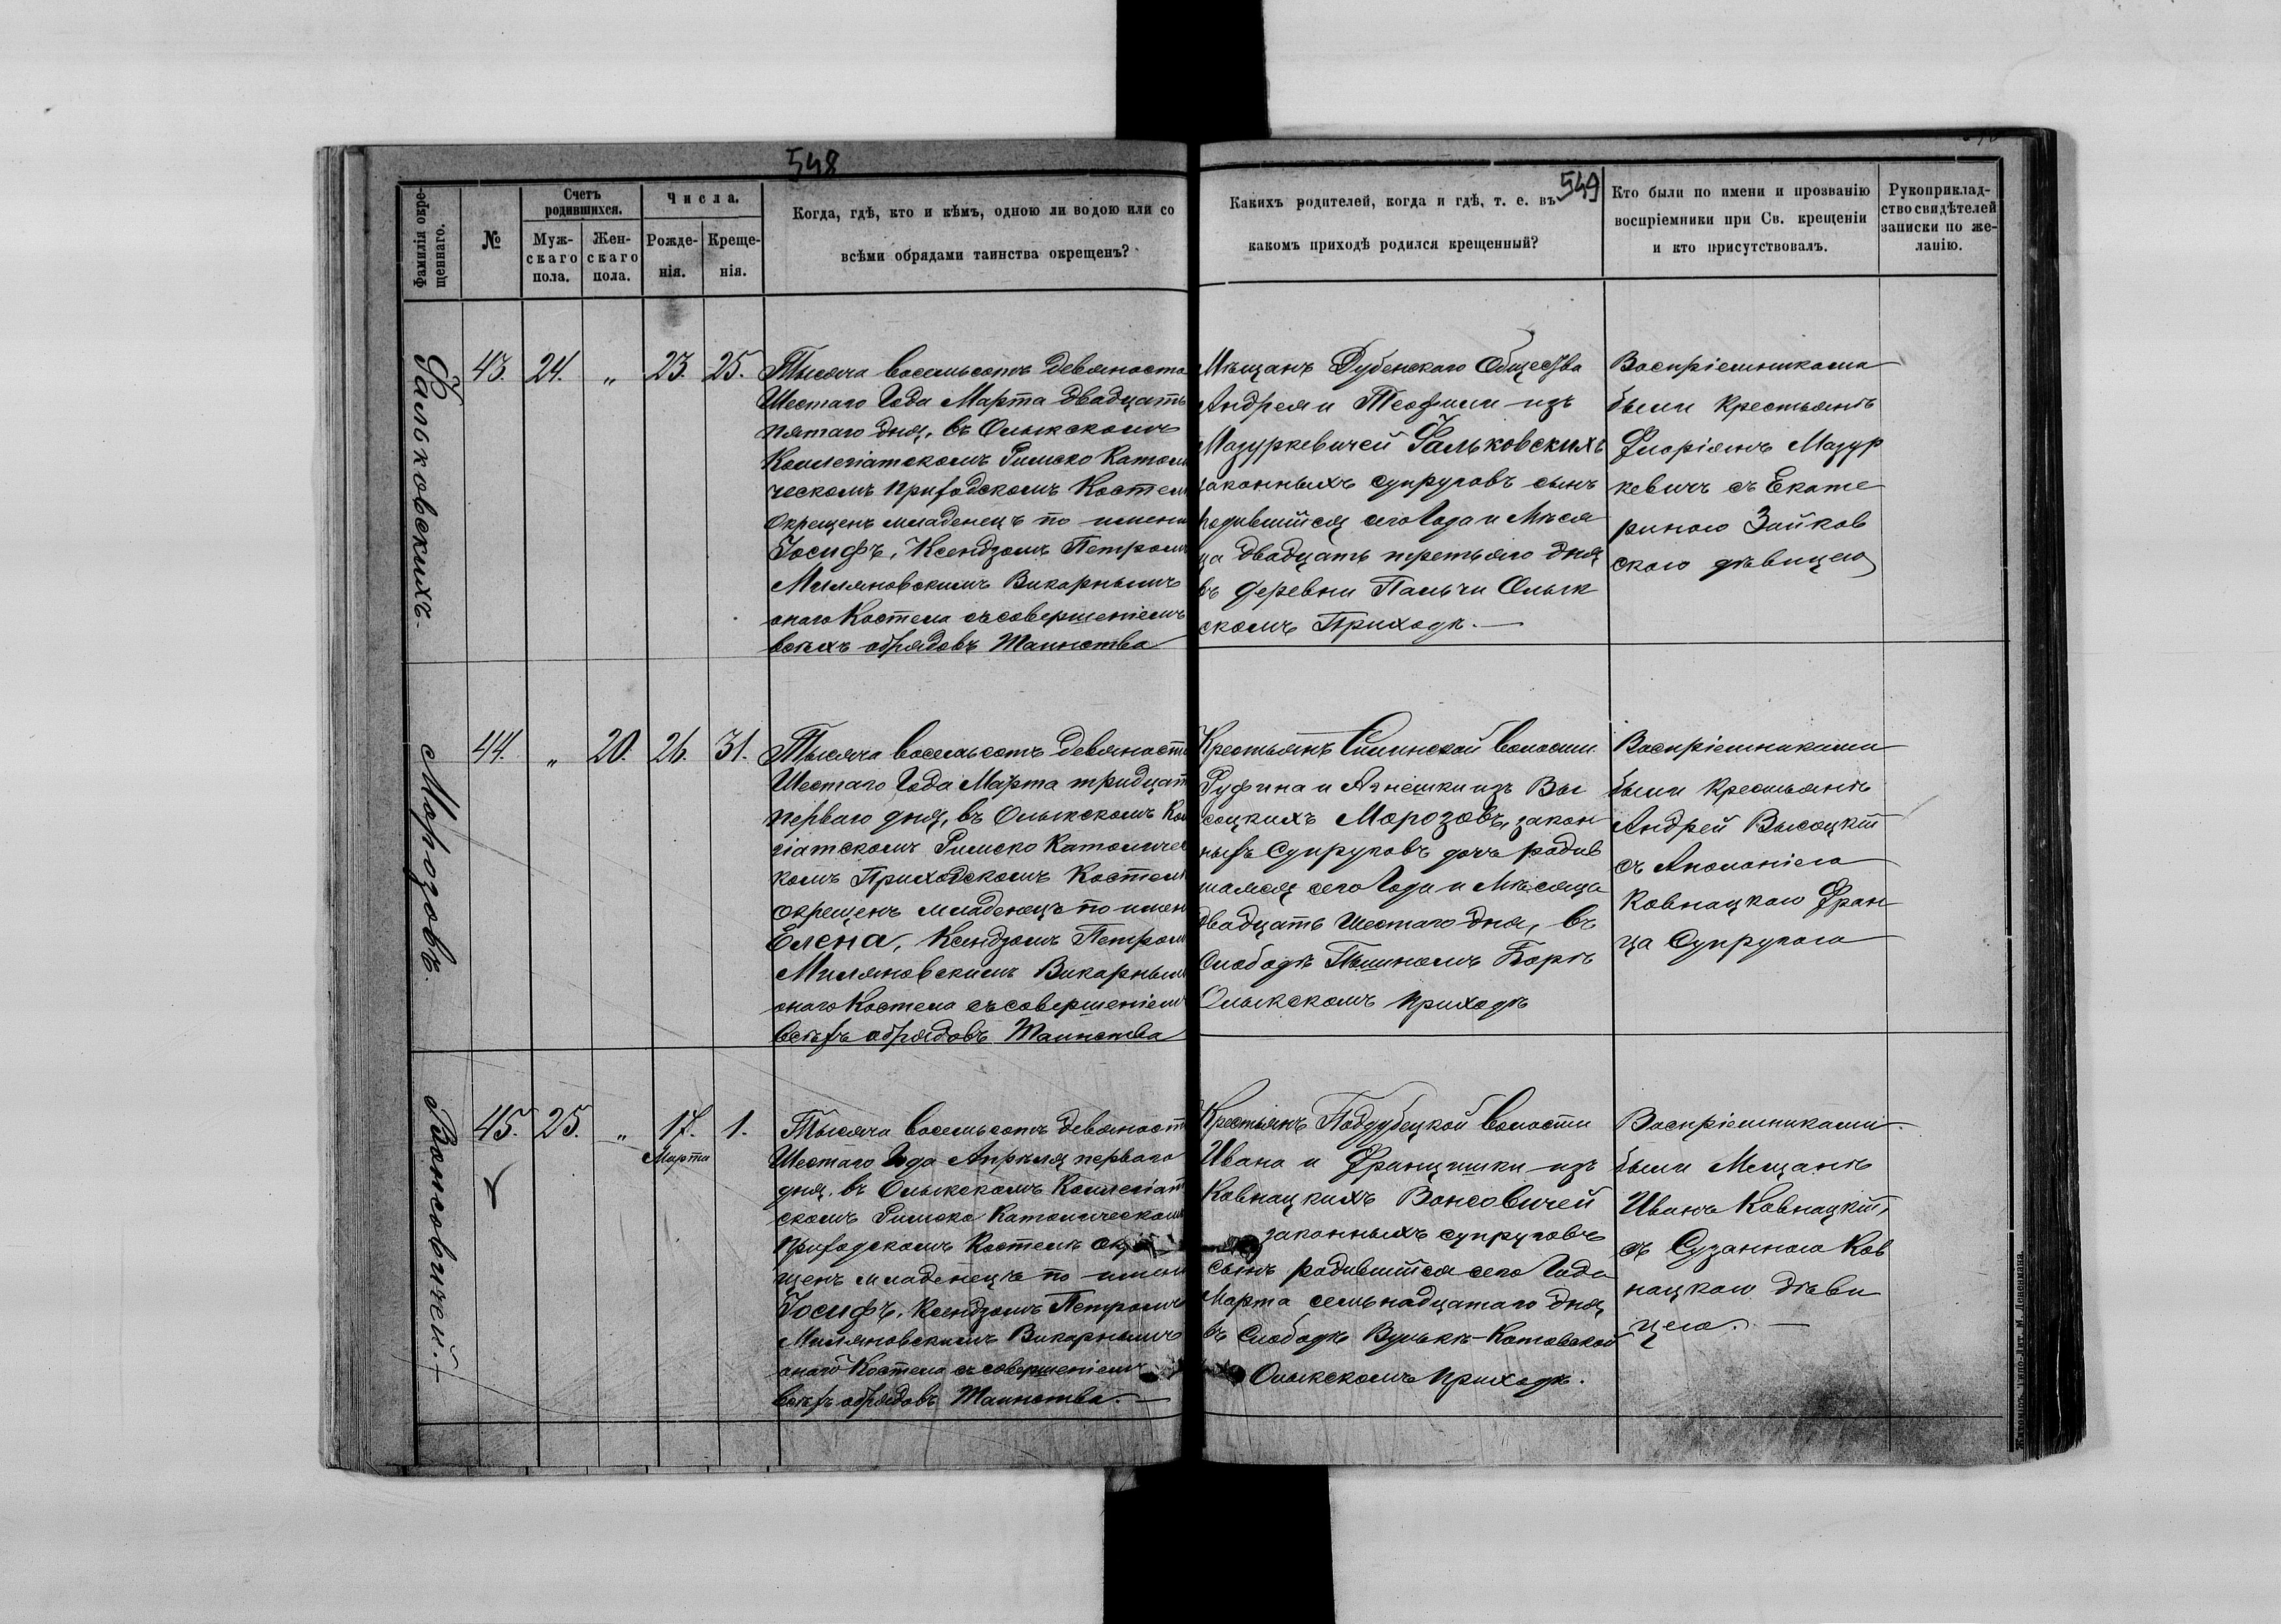 548
549
Фамилія окре-
щеннаго.
№
Счетъ
родившихся.
Муж-
скаго
пола.
Жен-
скаго
пола.
Числа.
Рожде-
нія.
Креще-
нія.
Когда, гдѣ, кто и кѣмъ, одною ли водою или со
всѣми обрядами таинства окрещенъ?
Какихъ родителей, когда и гдѣ, т. е. въ
какомъ приходѣ родился крещенный?
Кто были по имени и прозванію
воспріемники при Св. крещеніи
и кто присутствовалъ.
Рукоприклад-
ство свидѣтелей
записки по же-
ланію.
Фальковскихъ.
43. 24. „ 23. 25.
Тысяча восемьсотъ девяносто
Шестаго Года Марта двадцать
пятаго дня, въ Олыкскомъ
Коллегіатскомъ Римско Катол
ческомъ приходскомъ Костел
Окрещенъ младенецъ по имени
Іосифъ, Ксендзомъ Петромъ
Миляновскимъ Викарнымъ
онаго Костела съ совершеніемъ
всѣхъ обрядовъ Таинства
Мѣщанъ Дубенскаго Общества
Андрея и Теофили изъ
Мазуркевичей Фальковскихъ
законныхъ супруговъ сынъ
родившійся сего Года и Мѣся
ца двадцать третьяго дня
въ деревни Пальчи Олык
скомъ Приходѣ. —
Воспріемниками
были Крестьянѣ
Флоріянъ Мазур
кевичъ съ Екате
риною Зайков
скою дѣвицею
Морозовъ.
44. „ 20. 26. 31.
Тысяча восемьсотъ девяност
Шестаго Года Марта тридцат
перваго дня, въ Олыкскомъ Кол
гіатскомъ Римско Католичес
комъ Приходскомъ Костел
окрещенъ младенецъ по имен
Елена, Ксендзомъ Петром
Миляновскимъ Викарным
онаго Костела съ совершеніем
всѣхъ обрядовъ Таинства
Крестьянъ Силинской волости
Руфина и Агнешки изъ Вы
соцкихъ Морозовъ, закон
ныхъ Супруговъ дочь родив
шаяся сего Года и Мѣсяца
двадцать Шестаго дня, въ
Слободѣ Пышномъ Борѣ
Олыкскомъ приходѣ
Воспріемниками
были Крестьянѣ
Андрей Высоцкій
съ Аполоніею
Ковнацкою Фран
ца Супругою
Вонсовичей.
45. 25. „ 17. 1.
Марта
Тысяча восемьсотъ девяност
Шестаго Года Апрѣля перваго
дня, въ Олыкскомъ Коллегіат
скомъ Римско Католическом
приходскомъ Костелѣ окре
щенъ младенецъ по имени
Іосифъ, Ксендзомъ Петромъ
Миляновскимъ Викарнымъ
онаго Костела съ совершеніем
всѣхъ обрядовъ Таинства. —
Крестьянъ Поддубецкой волости
Ивана и Францишки изъ
Ковнацкихъ Вонсовичей
законныхъ супруговъ
сынъ родившійся сего Года
Марта семьнадцатаго дня
въ Слободѣ Вулькѣ-Котовской
Олыкскомъ приходѣ.
Воспріемниками
были Мещанѣ
Иванъ Ковнацкій,
съ Сузанною Ков
нацкою дѣви
цею. —